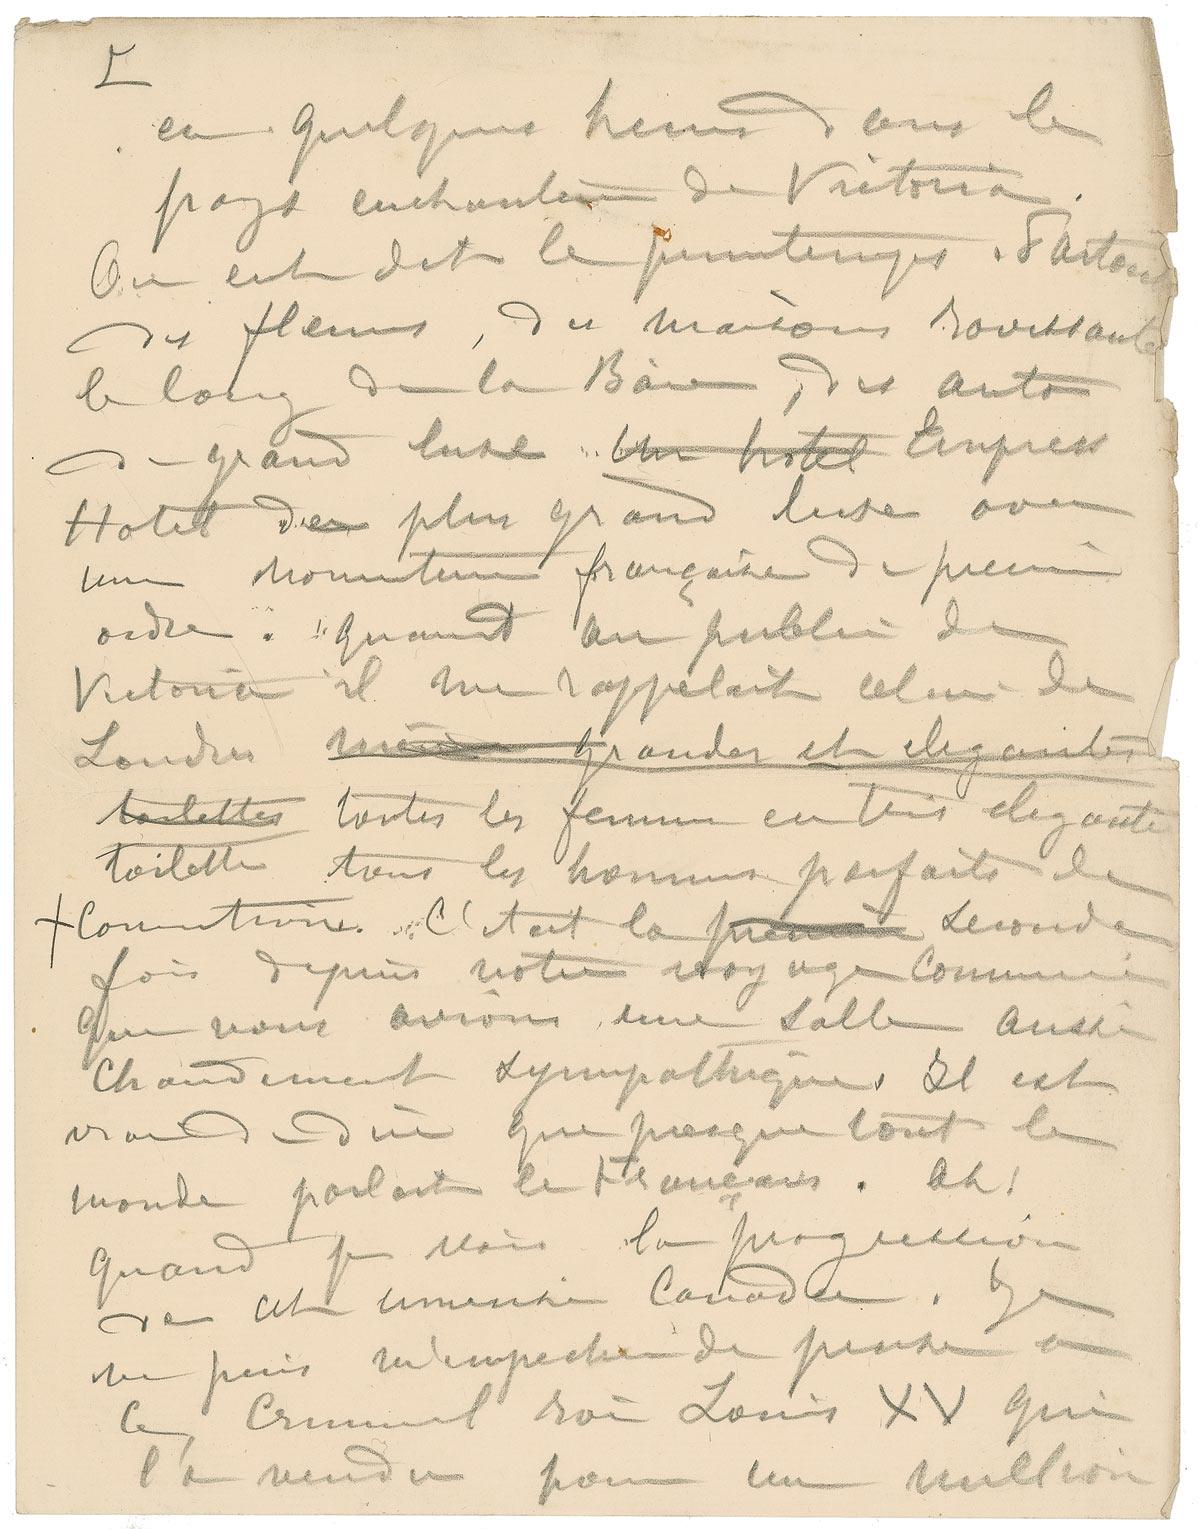 5
en quelques heures dans le
pays enchanteur de Victoria.
On est dit le printemps. Partout
des fleurs, des maisons ravissantes
le long de la Baie, des auto
de grand luxe un hotel Empress
Hotel de plus grand luxe avec
une nourriture française de premier
ordre. quant au public de
Victoria il me rappelait celui de
Londres grandes et elegantes
toilettes toutes les femmes en tres elegante
toilette tous les hommes parfaits de
+ Correction. C'etait la première seconde
fois depuis notre voyage
que nous avions une salle aussi
chaudement sympathique. Il est
vrai de dire que presque tout le
monde parlait le Français. Ah!
Quand je vois la progression
de cet immense Canada. Je
ne puis m'empecher de penser a
ce, Criminel roi Louis XV qui
l'a vendu pour un million